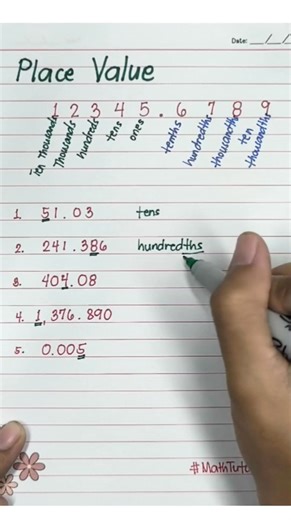 Date: __/__/
Place Value
1 2 3 4 5 . 6 7 8 9
ten thousands thousands hundreds tens ones tenths hundredths thousandths ten thousandths
1. 51.03 tens
2. 241.386 hundredths
3. 404.08
4. 1,376.890
5. 0.005
#MathTuto